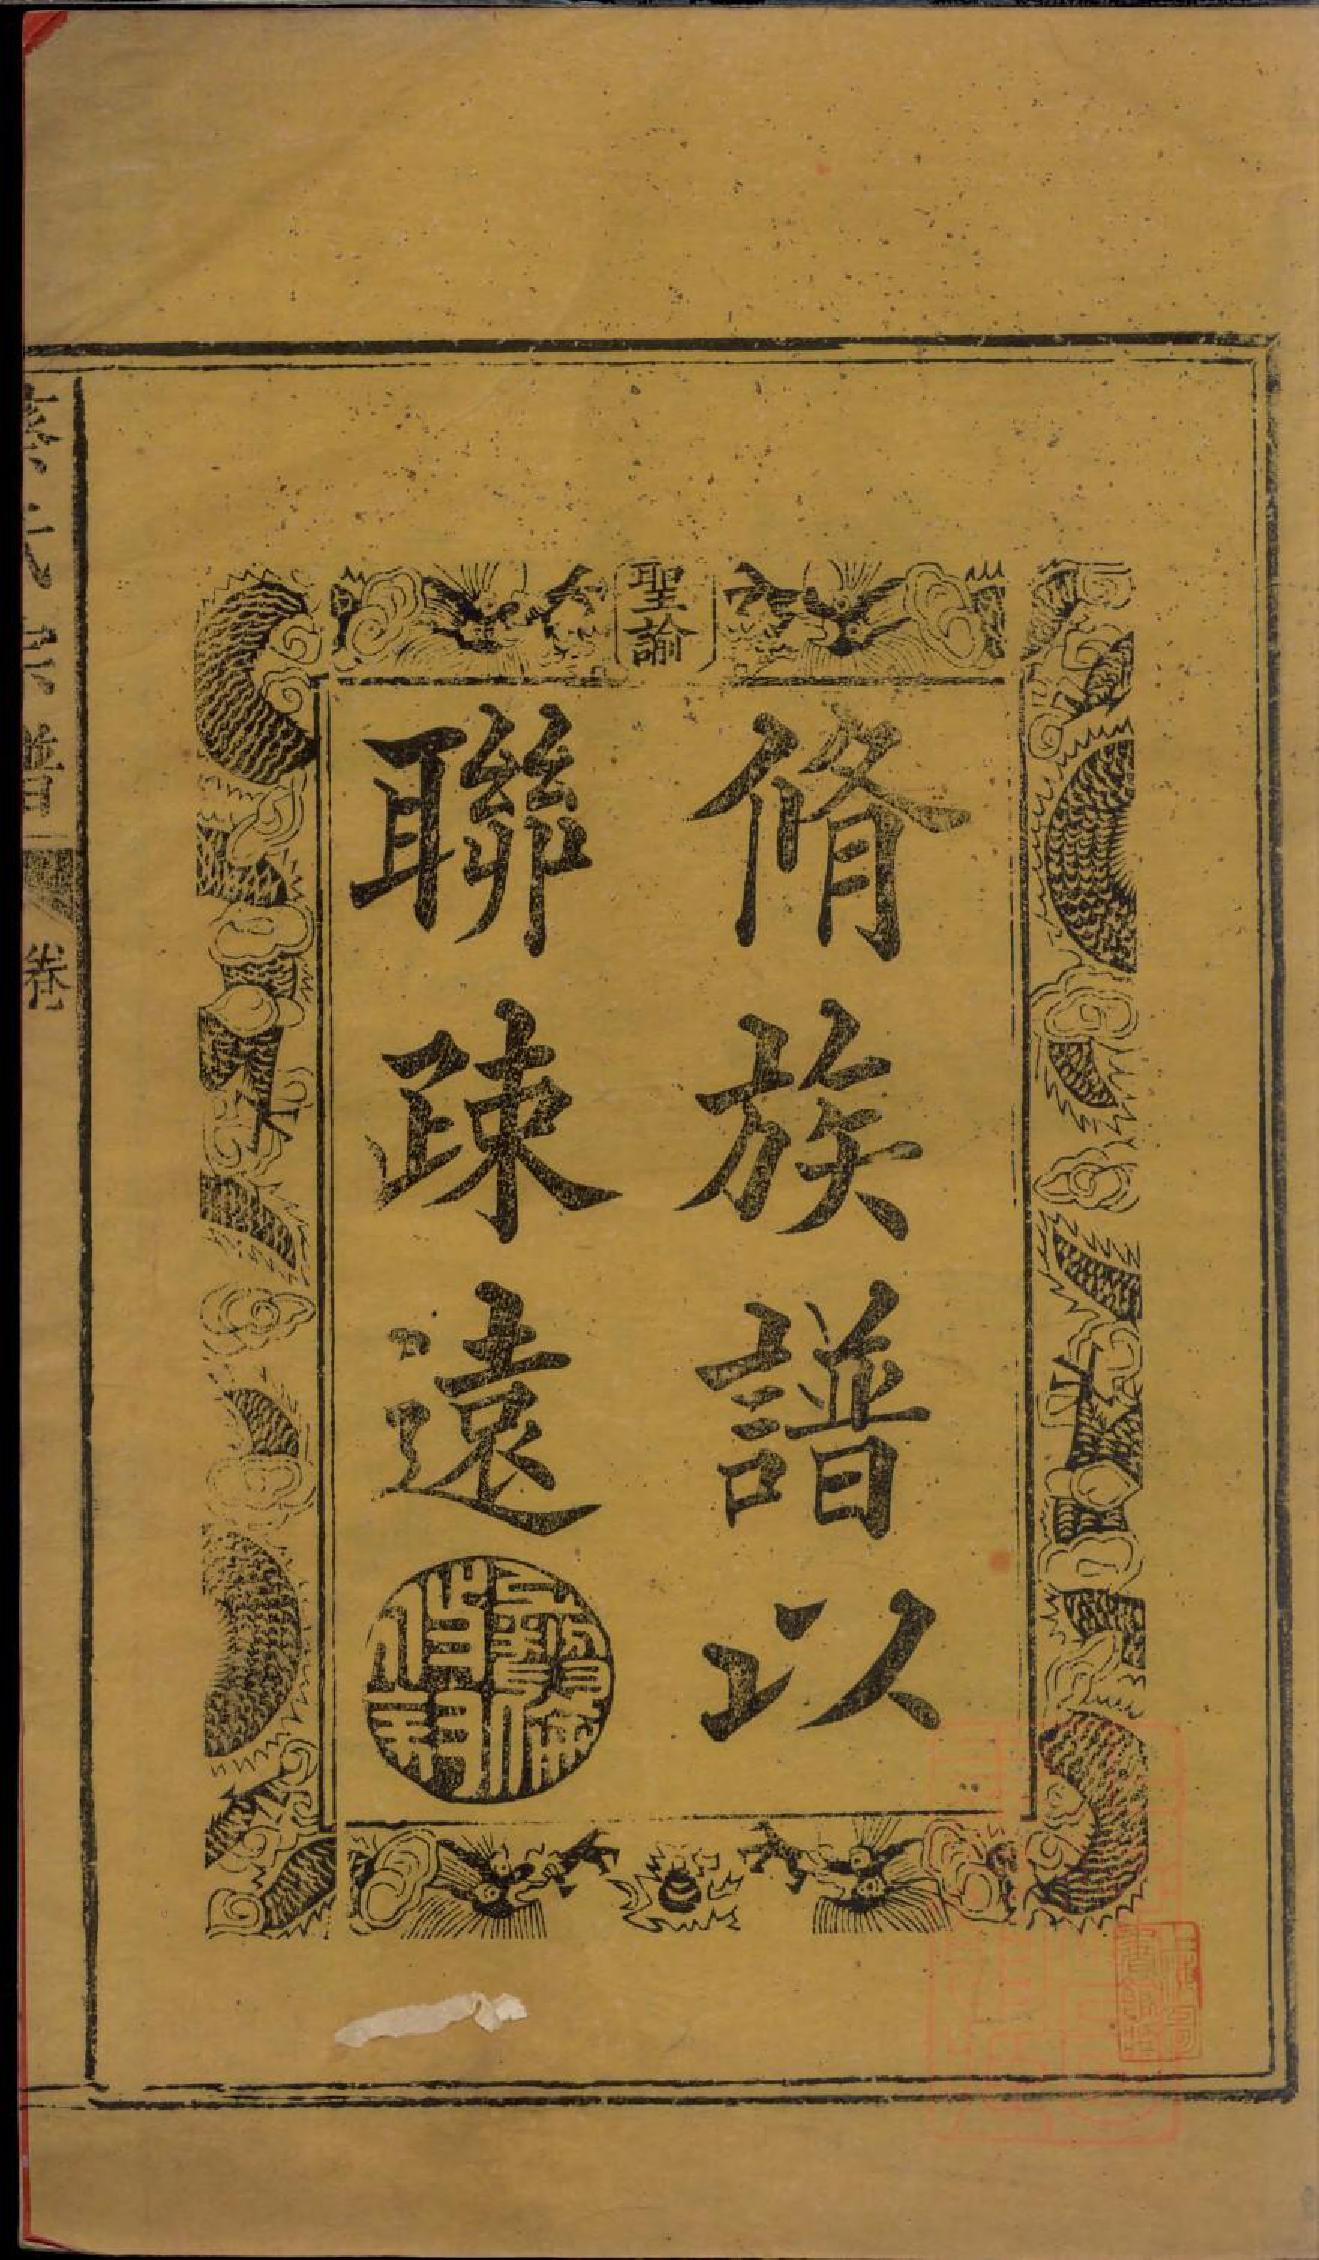 聖諭
脩族譜以
聯疎遠
氏宗譜
卷